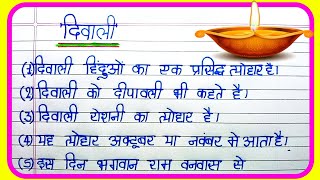 'दिवाली'
(1) दिवाली हिंदुओं का एक प्रसिद्ध त्योहार है।
(2) दिवाली को दीपावली भी कहते है।
(3) दिवाली रोशनी का त्योहार है।
(4) यह त्योहार अक्टूबर या नवम्बर में आता है।
(5) इस दिन भगवान राम वनवास से